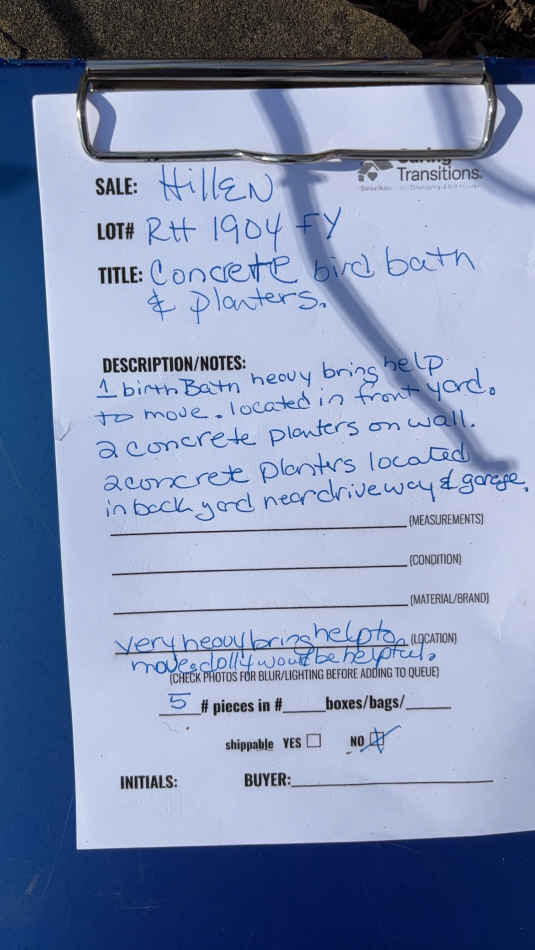 Transitions.
SALE: HillEN
LOT# RH 1904 FY
TITLE: Concrete bird bath
& planters.
DESCRIPTION/NOTES:
1 birth Bath heavy bring help
to move. located in front yard.
2 concrete planters on wall.
2 concrete planters located
in back yard near driveway & garage.
(MEASUREMENTS)
(CONDITION)
(MATERIAL/BRAND)
very heavy bring help to (LOCATION)
move & dolly would be helpful.
(CHECK PHOTOS FOR BLUR/LIGHTING BEFORE ADDING TO QUEUE)
5 # pieces in #______boxes/bags/______
shippable YES ☐ NO ☒
INITIALS: BUYER:______